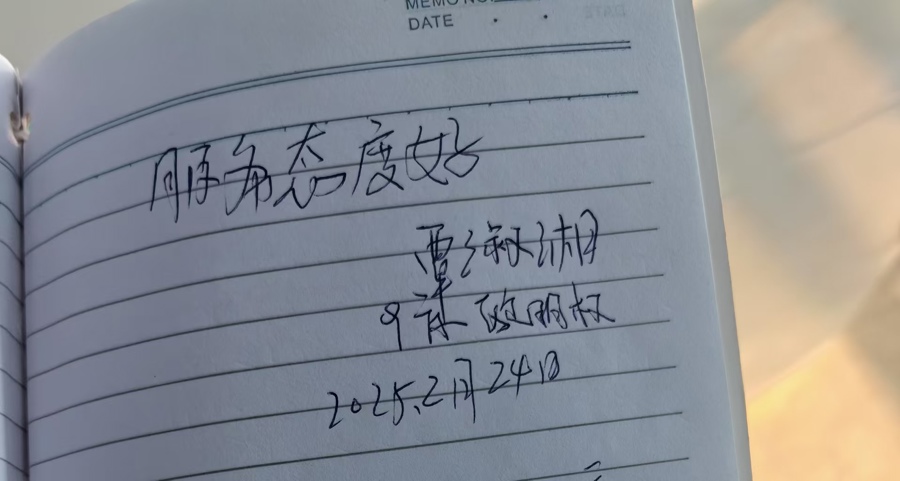 MEMO NO.
DATE
服务态度好
贾淑湘
9床 欧明权
2025.2月24日